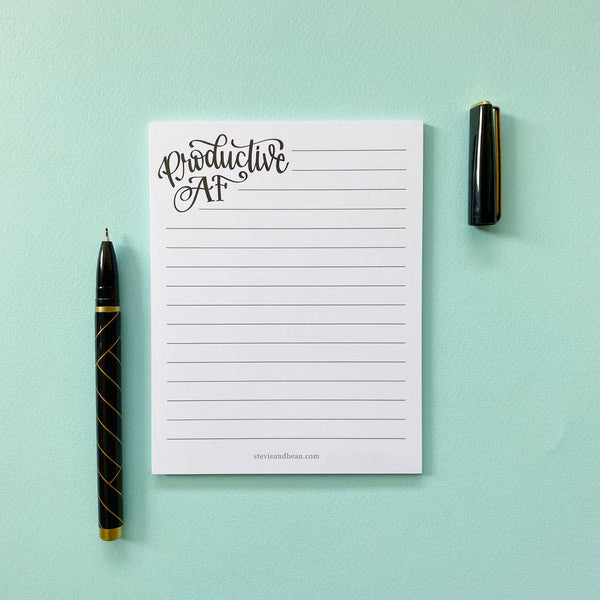 Productive
AF
stevieandbean.com